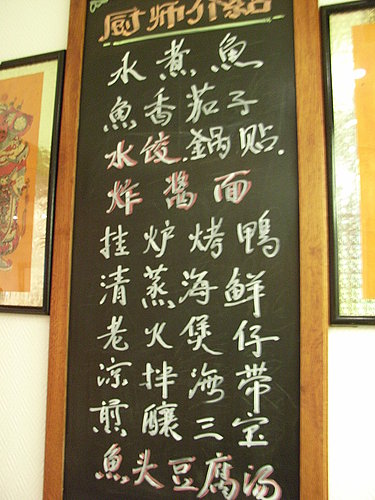 厨师介紹
水煮魚
魚香茄子
水饺.鍋贴.
炸醬面
挂炉烤鴨
清蒸海鮮
老火煲仔
凉拌海带
煎釀三宝
魚头豆腐汤